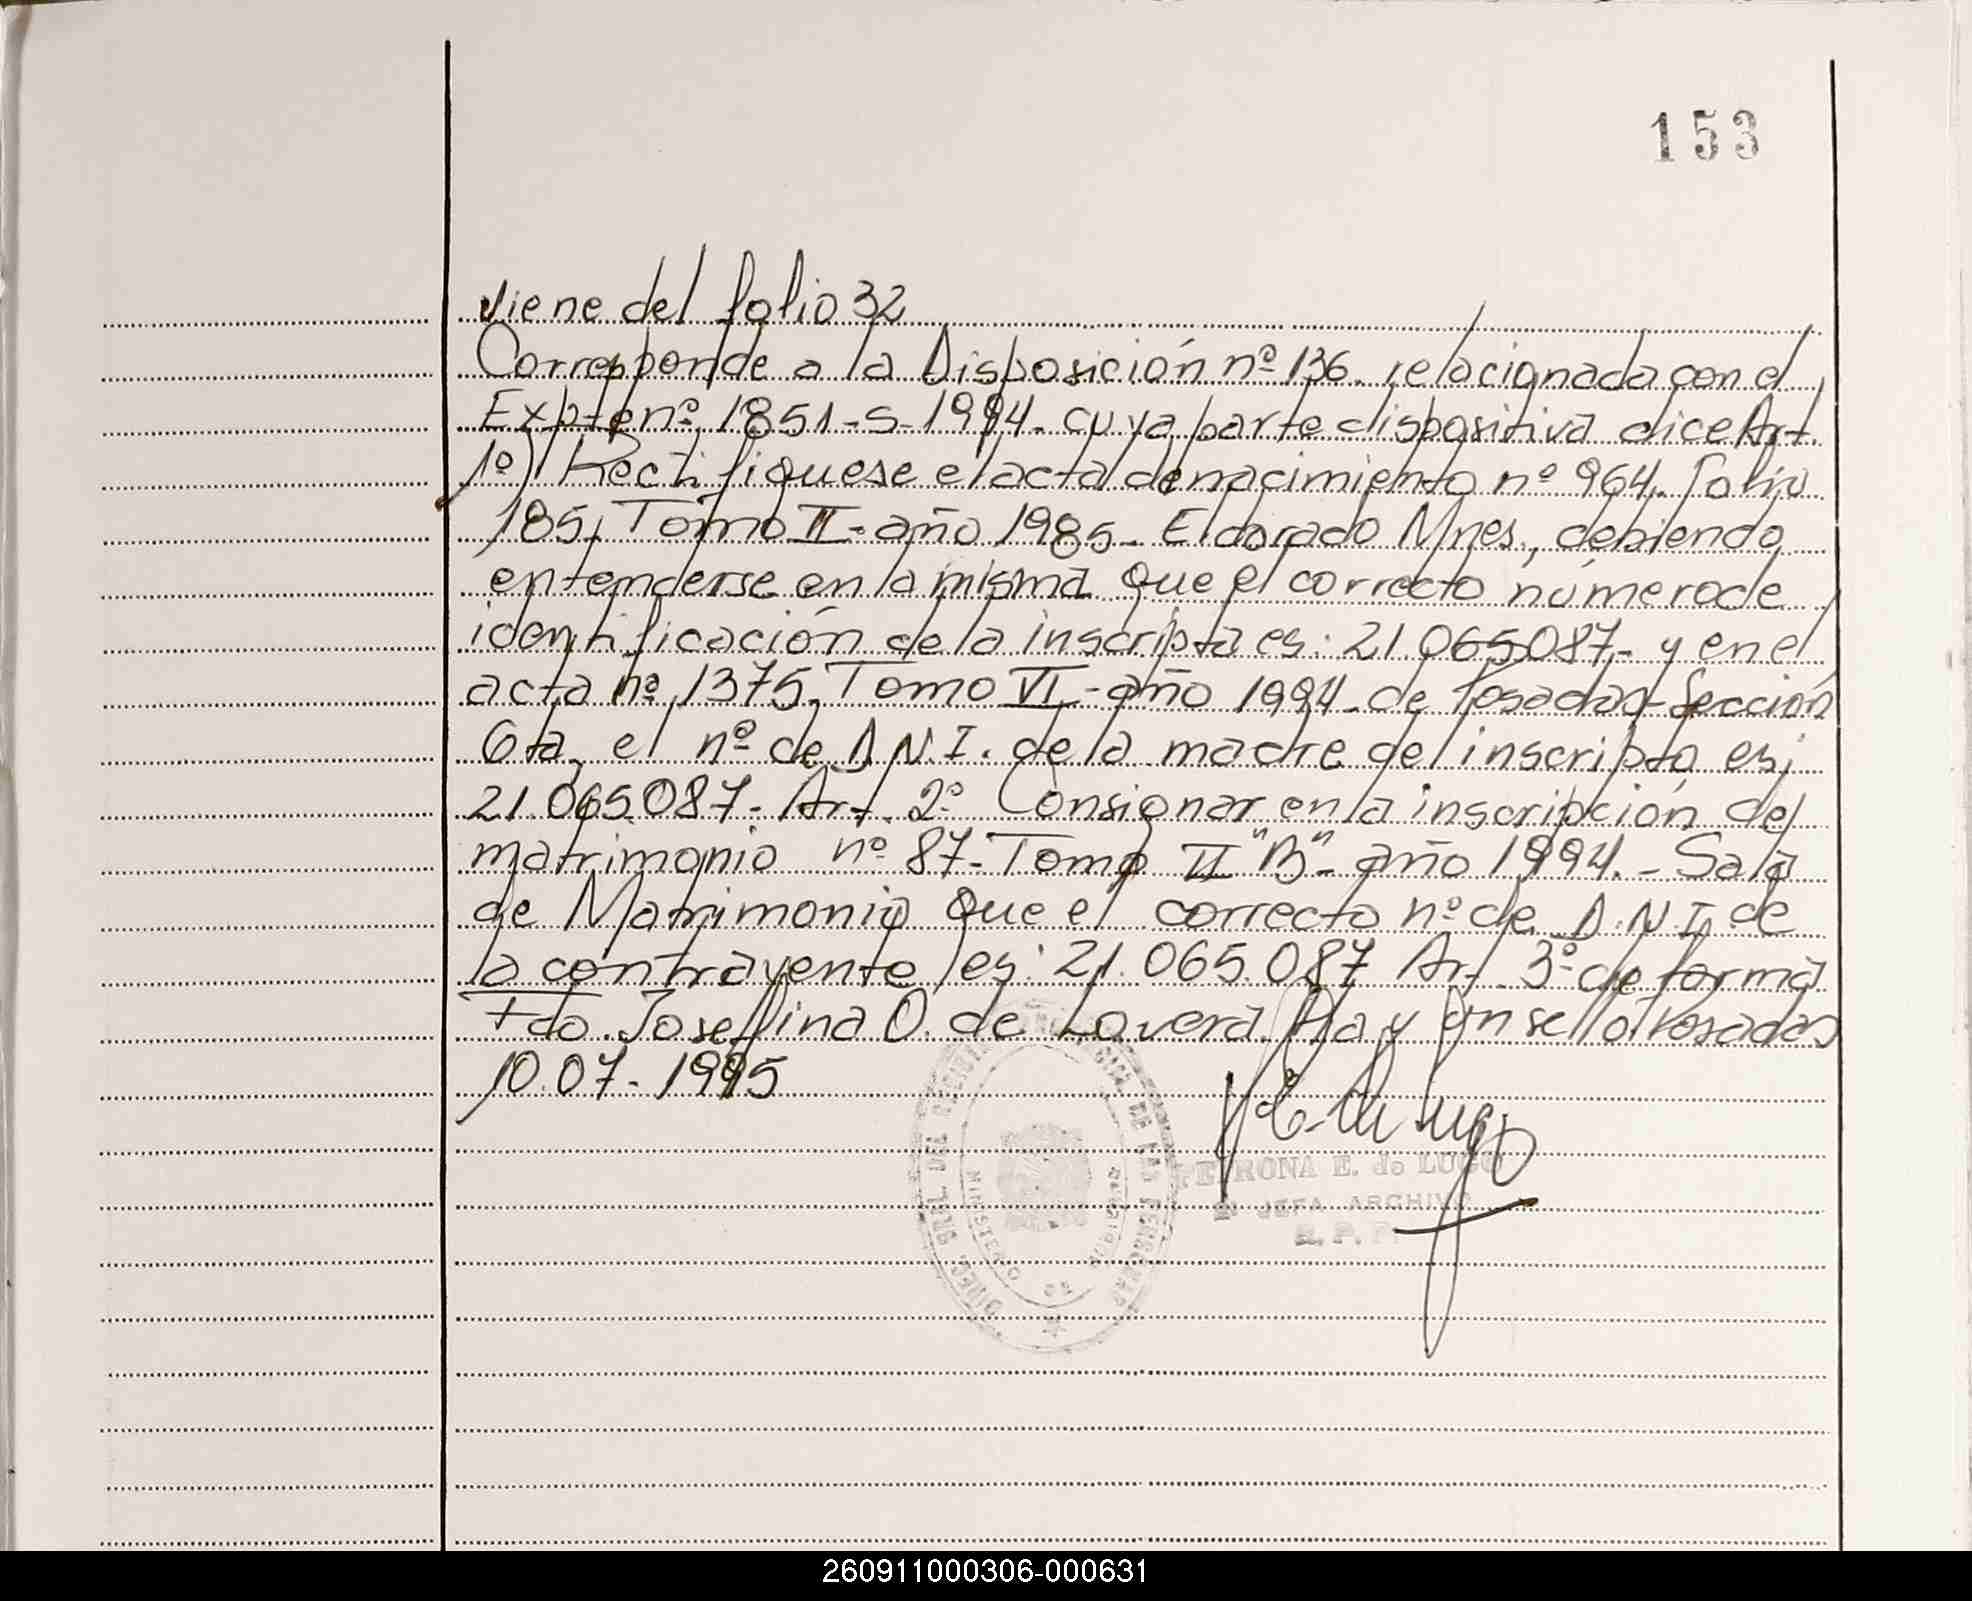 153
viene del folio 32
Corresponde a la Disposición nº 136. relacionada con el
Expte nº 1851-S-1994. cuya parte dispositiva dice Art.
1º) Rectifiquese el acta de nacimiento nº 964. Folio
185, Tomo II - año 1985 - Eldorado Mnes., debiendo
entenderse en la misma que el correcto número de
identificación de la inscripta es: 21.065.087.- y en el
acta nº 1375, Tomo VI - año 1994 - de Posadas - Sección
6ta, el nº de D.N.I. de la madre del inscripto es;
21.065.087 - Art. 2º Consignar en la inscripción del
matrimonio nº 87 - Tomo II "B" - año 1994. - Sala
de Matrimonio que el correcto nº de D.N.I. de
la contrayente es: 21.065.087 Art 3º de forma
Fdo. Joseffina O. de Lovera. Hay un sello Posadas
10.07 - 1995
DIREC. GRAL. DEL REGISTRO DE LAS PERSONAS
MINISTERIO DE
PETRONA E. de LUGO
JEFA ARCHIVO
R. P. P.
260911000306-000631